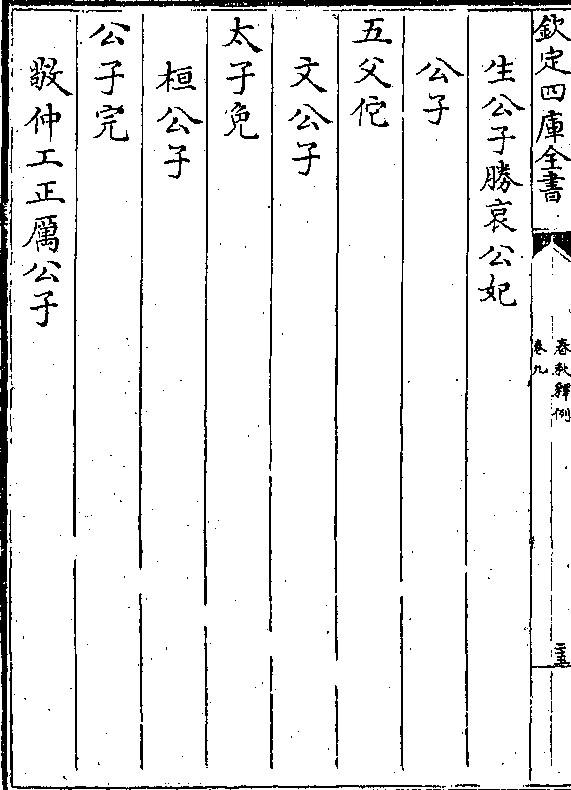 欽定四庫全書
春秋釋例
卷九
二十五
生公子勝哀公妃
公子
五父佗
文公子
太子免
桓公子
公子完
敬仲工正厲公子